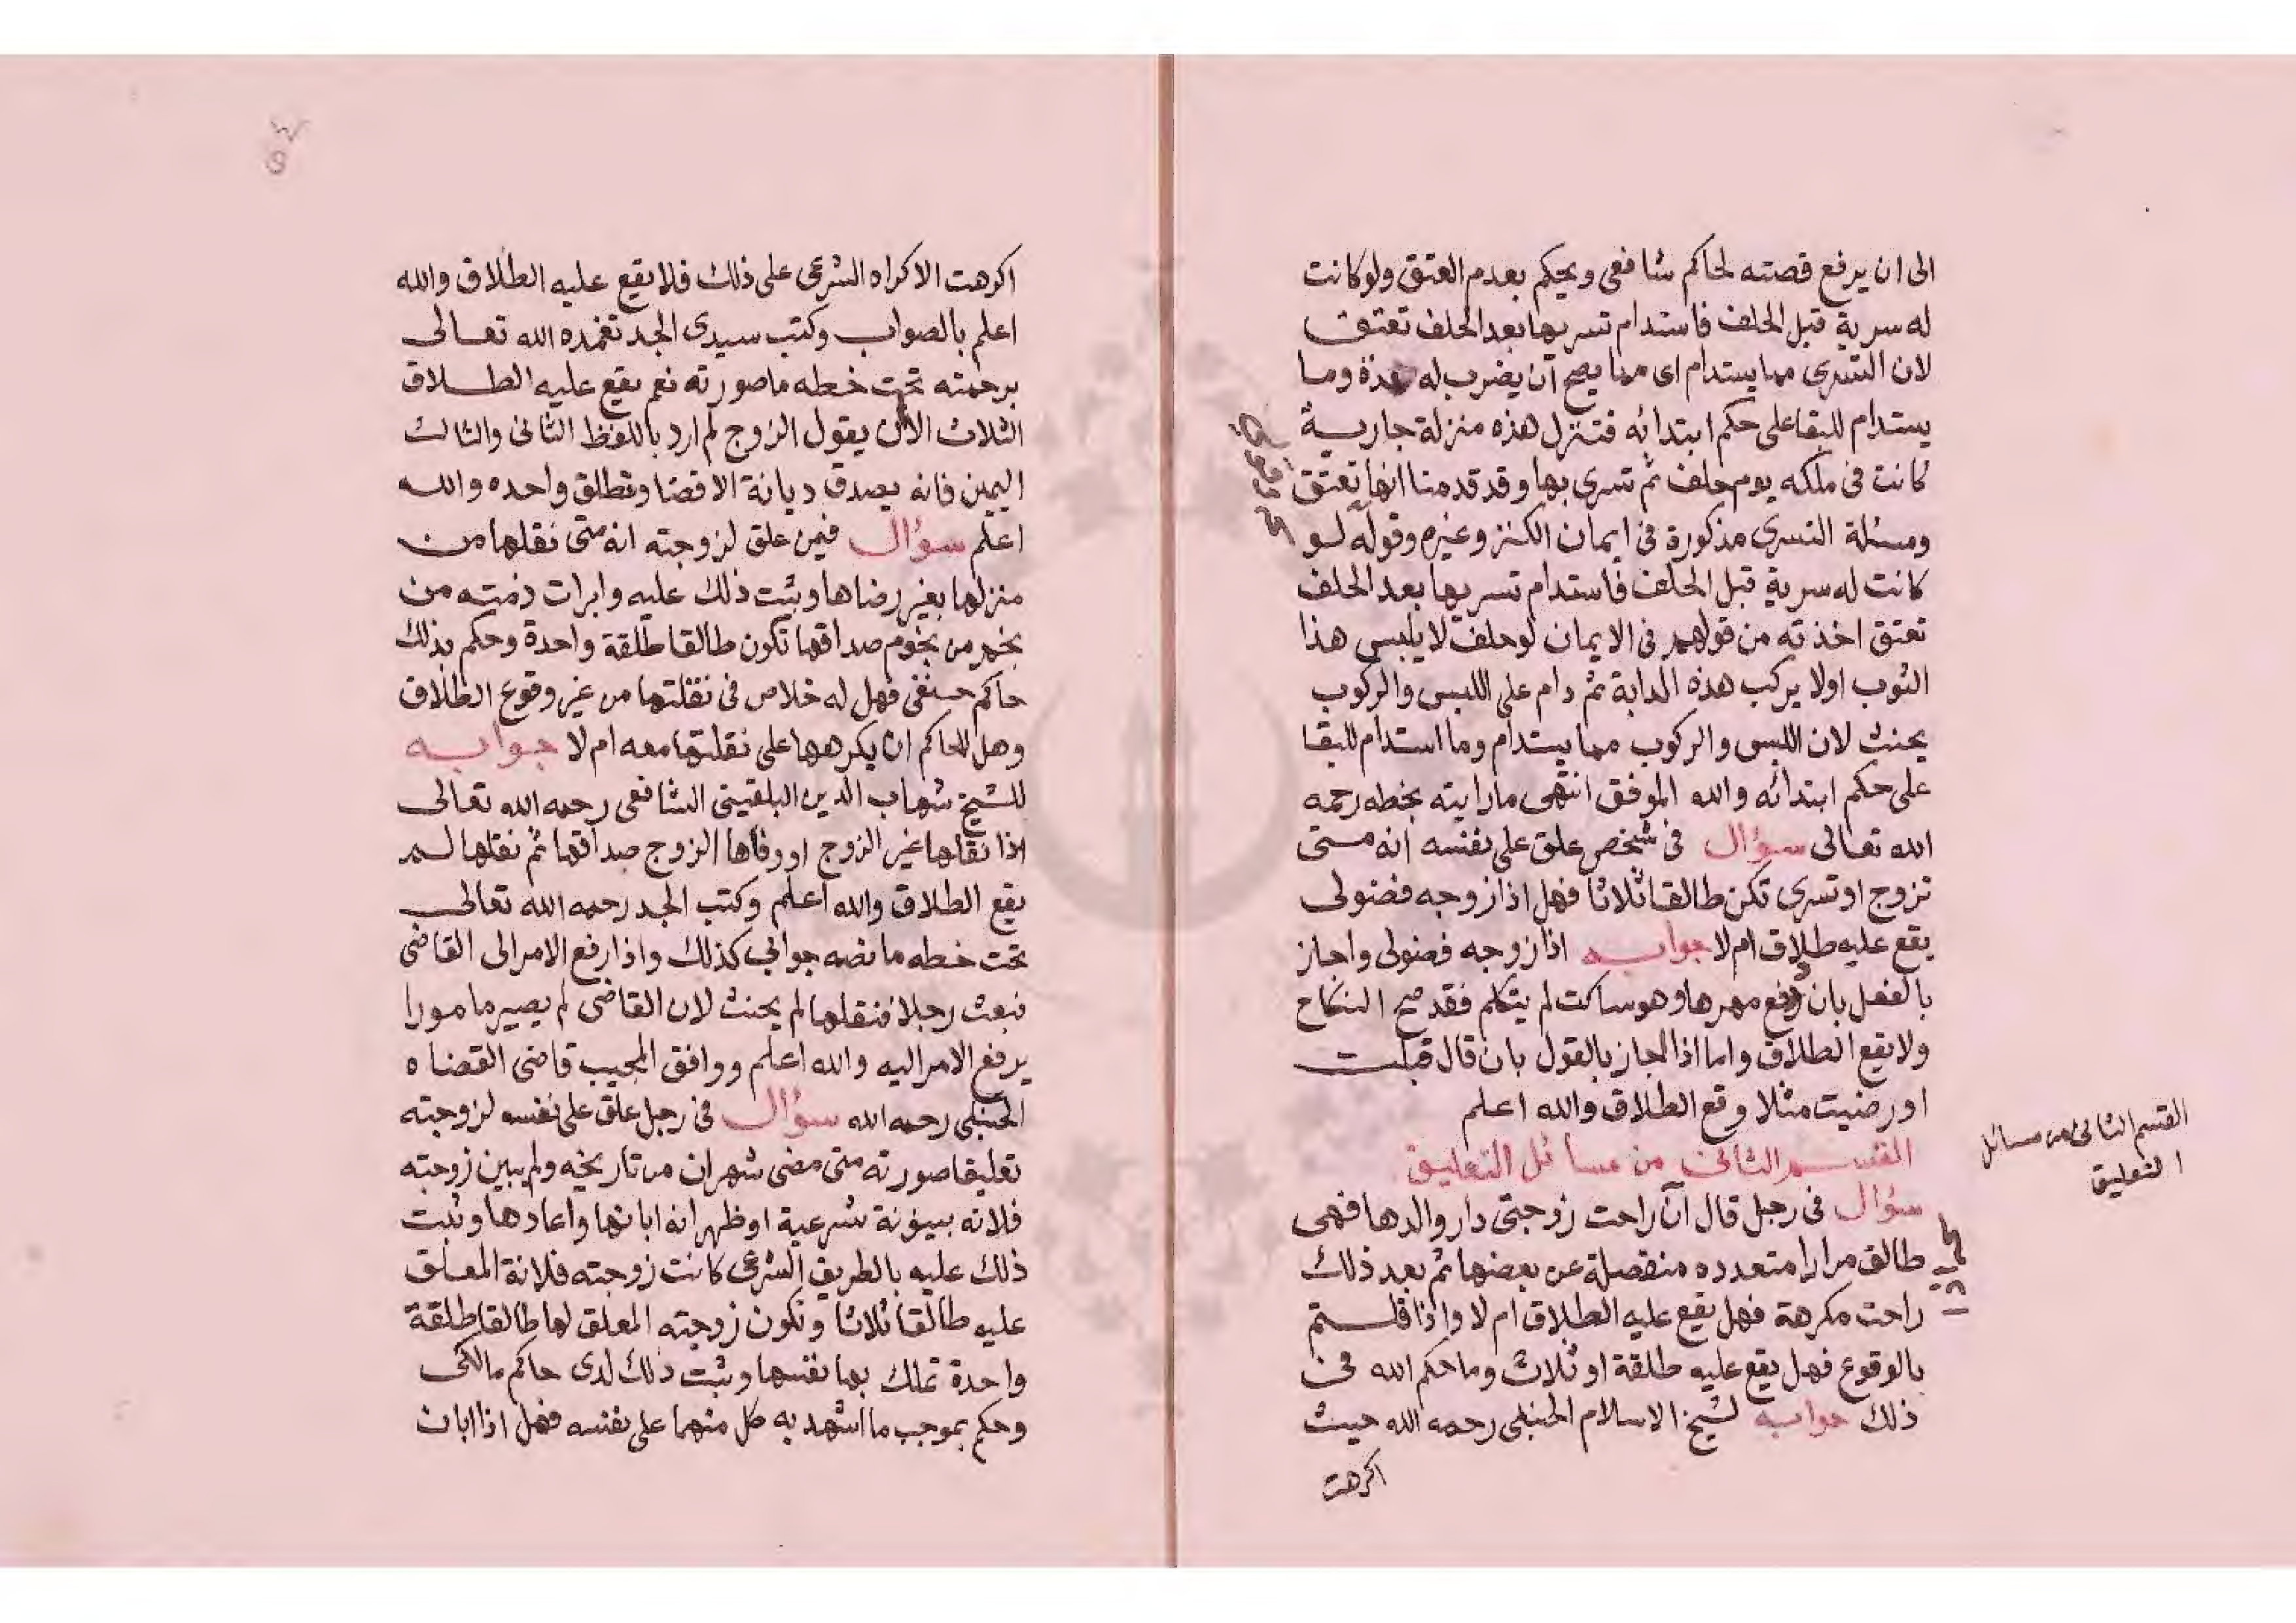 الى ان يرفع قصته لحاكم شافعى ويحكم بعدم العتق ولو كانت
له سرية قبل الحلف فاستدام تسريها بعد الحلف تعتق
لان التسرى مما يستدام اى مما يصح أن يضرب له مدة وما
يستدام للبقا على حكم ابتدائه فتنزل هذه منزلة جارية
كانت فى ملكه يوم حلف ثم تسرى بها وقد قدمنا انها تعتق
ومسئلة التسرى مذكورة فى ايمان الكنز وغيره وقوله لو
كانت له سرية قبل الحلف فاستدام تسريها بعد الحلف
تعتق اخذته من قولهم فى الايمان لو حلف لا يلبس هذا
الثوب اولا يركب هذه الدابة ثم دام على اللبس والركوب
يحنث لان اللبس والركوب مما يستدام وما استدام للبقا
على حكم ابتدائه والله الموفق انتهى ما رايته بخطه رحمه
الله تعالى سؤال فى شخص علق على نفسه انه متى
تزوج او تسرى تكن طالقا ثلاثا فهل اذا زوجه فضولى
يقع عليه طلاق ام لا جوابه اذا زوجه فضولى واجاز
بالفعل بان دفع مهرها وهو ساكت لم يتكلم فقد صح النكاح
ولا يقع الطلاق واما اذا اجاز بالقول بان قال قبلت
او رضيت مثلا وقع الطلاق والله اعلم
القسم الثانى من مسائل التعليق
القسم الثانى من مسائل
التعليق
سؤال فى رجل قال أن راحت زوجتى دار والدها فهى
طالق مرارا متعدده منفصلة عن بعضها ثم بعد ذلك
راحت مكرهة فهل يقع عليه الطلاق ام لا واذا قلتم
بالوقوع فهل يقع عليه طلقة او ثلاث وما حكم الله فى
ذلك جوابه لشيخ الاسلام الحنبلى رحمه الله حيث
اكرهت
اكرهت الاكراه الشرعى على ذلك فلا يقع عليه الطلاق والله
اعلم بالصواب وكتب سيدى الجد تغمده الله تعالى
برحمته تحت خطه ما صورته نعم يقع عليه الطلاق
الثلاث الا أن يقول الزوج لم ارد باللفظ الثانى والثالث
اليمين فانه يصدق ديانة لا قضا وتطلق واحده والله
اعلم سؤال فيمن علق لزوجته انه متى نقلها من
منزلها بغير رضاها وثبت ذلك عليه وابرات ذمته من
نجم من نجوم صداقها تكون طالقا طلقة واحدة وحكم بذلك
حاكم حنفى فهل له خلاص فى نقلتها من غير وقوع الطلاق
وهل للحاكم ان يكرهها على نقلتها معه ام لا جوابه
للشيخ شهاب الدين البلقينى الشافعى رحمه الله تعالى
اذا نقلها غير الزوج او وفاها الزوج صداقها ثم نقلها لم
يقع الطلاق والله اعلم وكتب الجد رحمه الله تعالى
تحت خطه ما نصه جوابى كذلك واذا رفع الامر الى القاضى
فبعث رجلا فنقلها لم يحنث لان القاضى لم يصير مامورا
يرفع الامر اليه والله اعلم ووافق المجيب قاضى القضاه
الحنبلى رحمه الله سؤال فى رجل علق على نفسه لزوجته
تعليقا صورته متى مضى شهران من تاريخه ولم يبين زوجته
فلانه بينونة شرعية او ظهر انه ابانها واعادها وثبت
ذلك عليه بالطريق الشرعى كانت زوجته فلانة المعلق
عليه طالقا ثلاثا وتكون زوجته المعلق لها طالقا طلقة
واحدة تملك بها نفسها وثبت ذلك لدى حاكم مالكى
وحكم بموجب ما اشهد به كل منهما على نفسه فهل اذا ابان